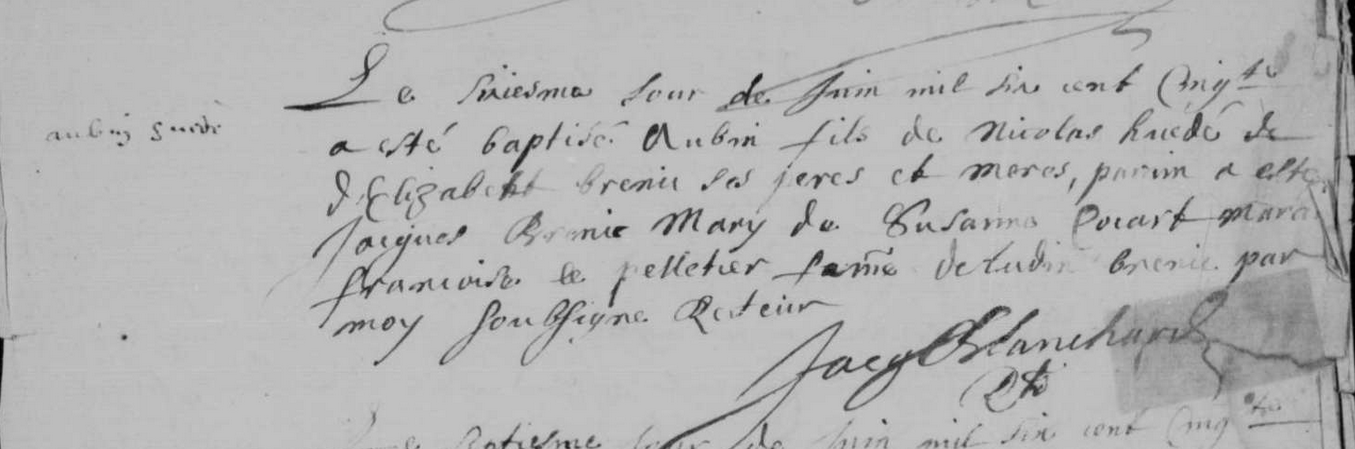 aubin huede
Le sixiesme Jour de Juin mil six cent Cinq.te
a esté baptisé Aubin fils de Nicolas huedé de
d'Elizabeht brenie ses peres et meres, parin a esté
Jacques Brenie Mary de Susanne Cocart mare
francoise le pelletier fame de brenie par
moy Soubsigne Recteur
Jacq Blanchard
Le setiesme Jour de Juin mil six cent Cinq.te